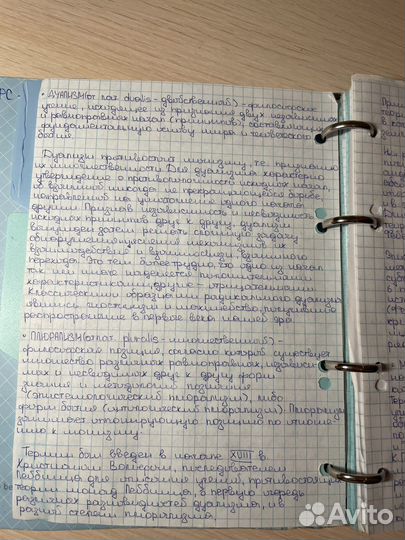 • ДУАЛИЗМ (от лат. dualis - двойственный) - философское
учение, исходящее из признания двух независимых
и равноправных начал (принципов), составляющих
фундаментальную основу мира и человеческого
бытия.
Дуализм противостоит монизму, т.е. признанию
их множественности. Для дуализма характерно
утверждение о противоположности исходных начал,
их взаимной никогда не прекращающейся борьбе,
направленной на уничтожение одного начала
другим. Признав независимость и несводимость
исходных принципов друг к другу, дуализм
вынужден затем решать сложную задачу
обнаружения и уяснения механизмов их
взаимодействия и взаимосвязи, взаимного
перехода. Это тем более трудно, что одно из начал
так или иначе наделяется положительными
характеристиками, другие - отрицательными.
Классическими образцами радикального дуализма
явились гностицизм и манихейство, получившие
распространение в первые века нашей эры.
• ПЛЮРАЛИЗМ (от лат. pluralis - множественный) -
философская позиция, согласно которой существует
множество различных равноправных, независимых
и несводимых друг к другу форм
знания и методологий познания
(эпистемологический плюрализм), либо
форм бытия (онтологический плюрализм). Плюрализм
занимает оппонирующую позицию по отноше-
нию к монизму.
Термин был введен в начале XVIII в.
Христианом Вольфом, последователем
Лейбница для описания учений, противостоящих
теории монад Лейбница, в первую очередь
различных разновидностей дуализма, и в
разной степени плюрализма.
Avito